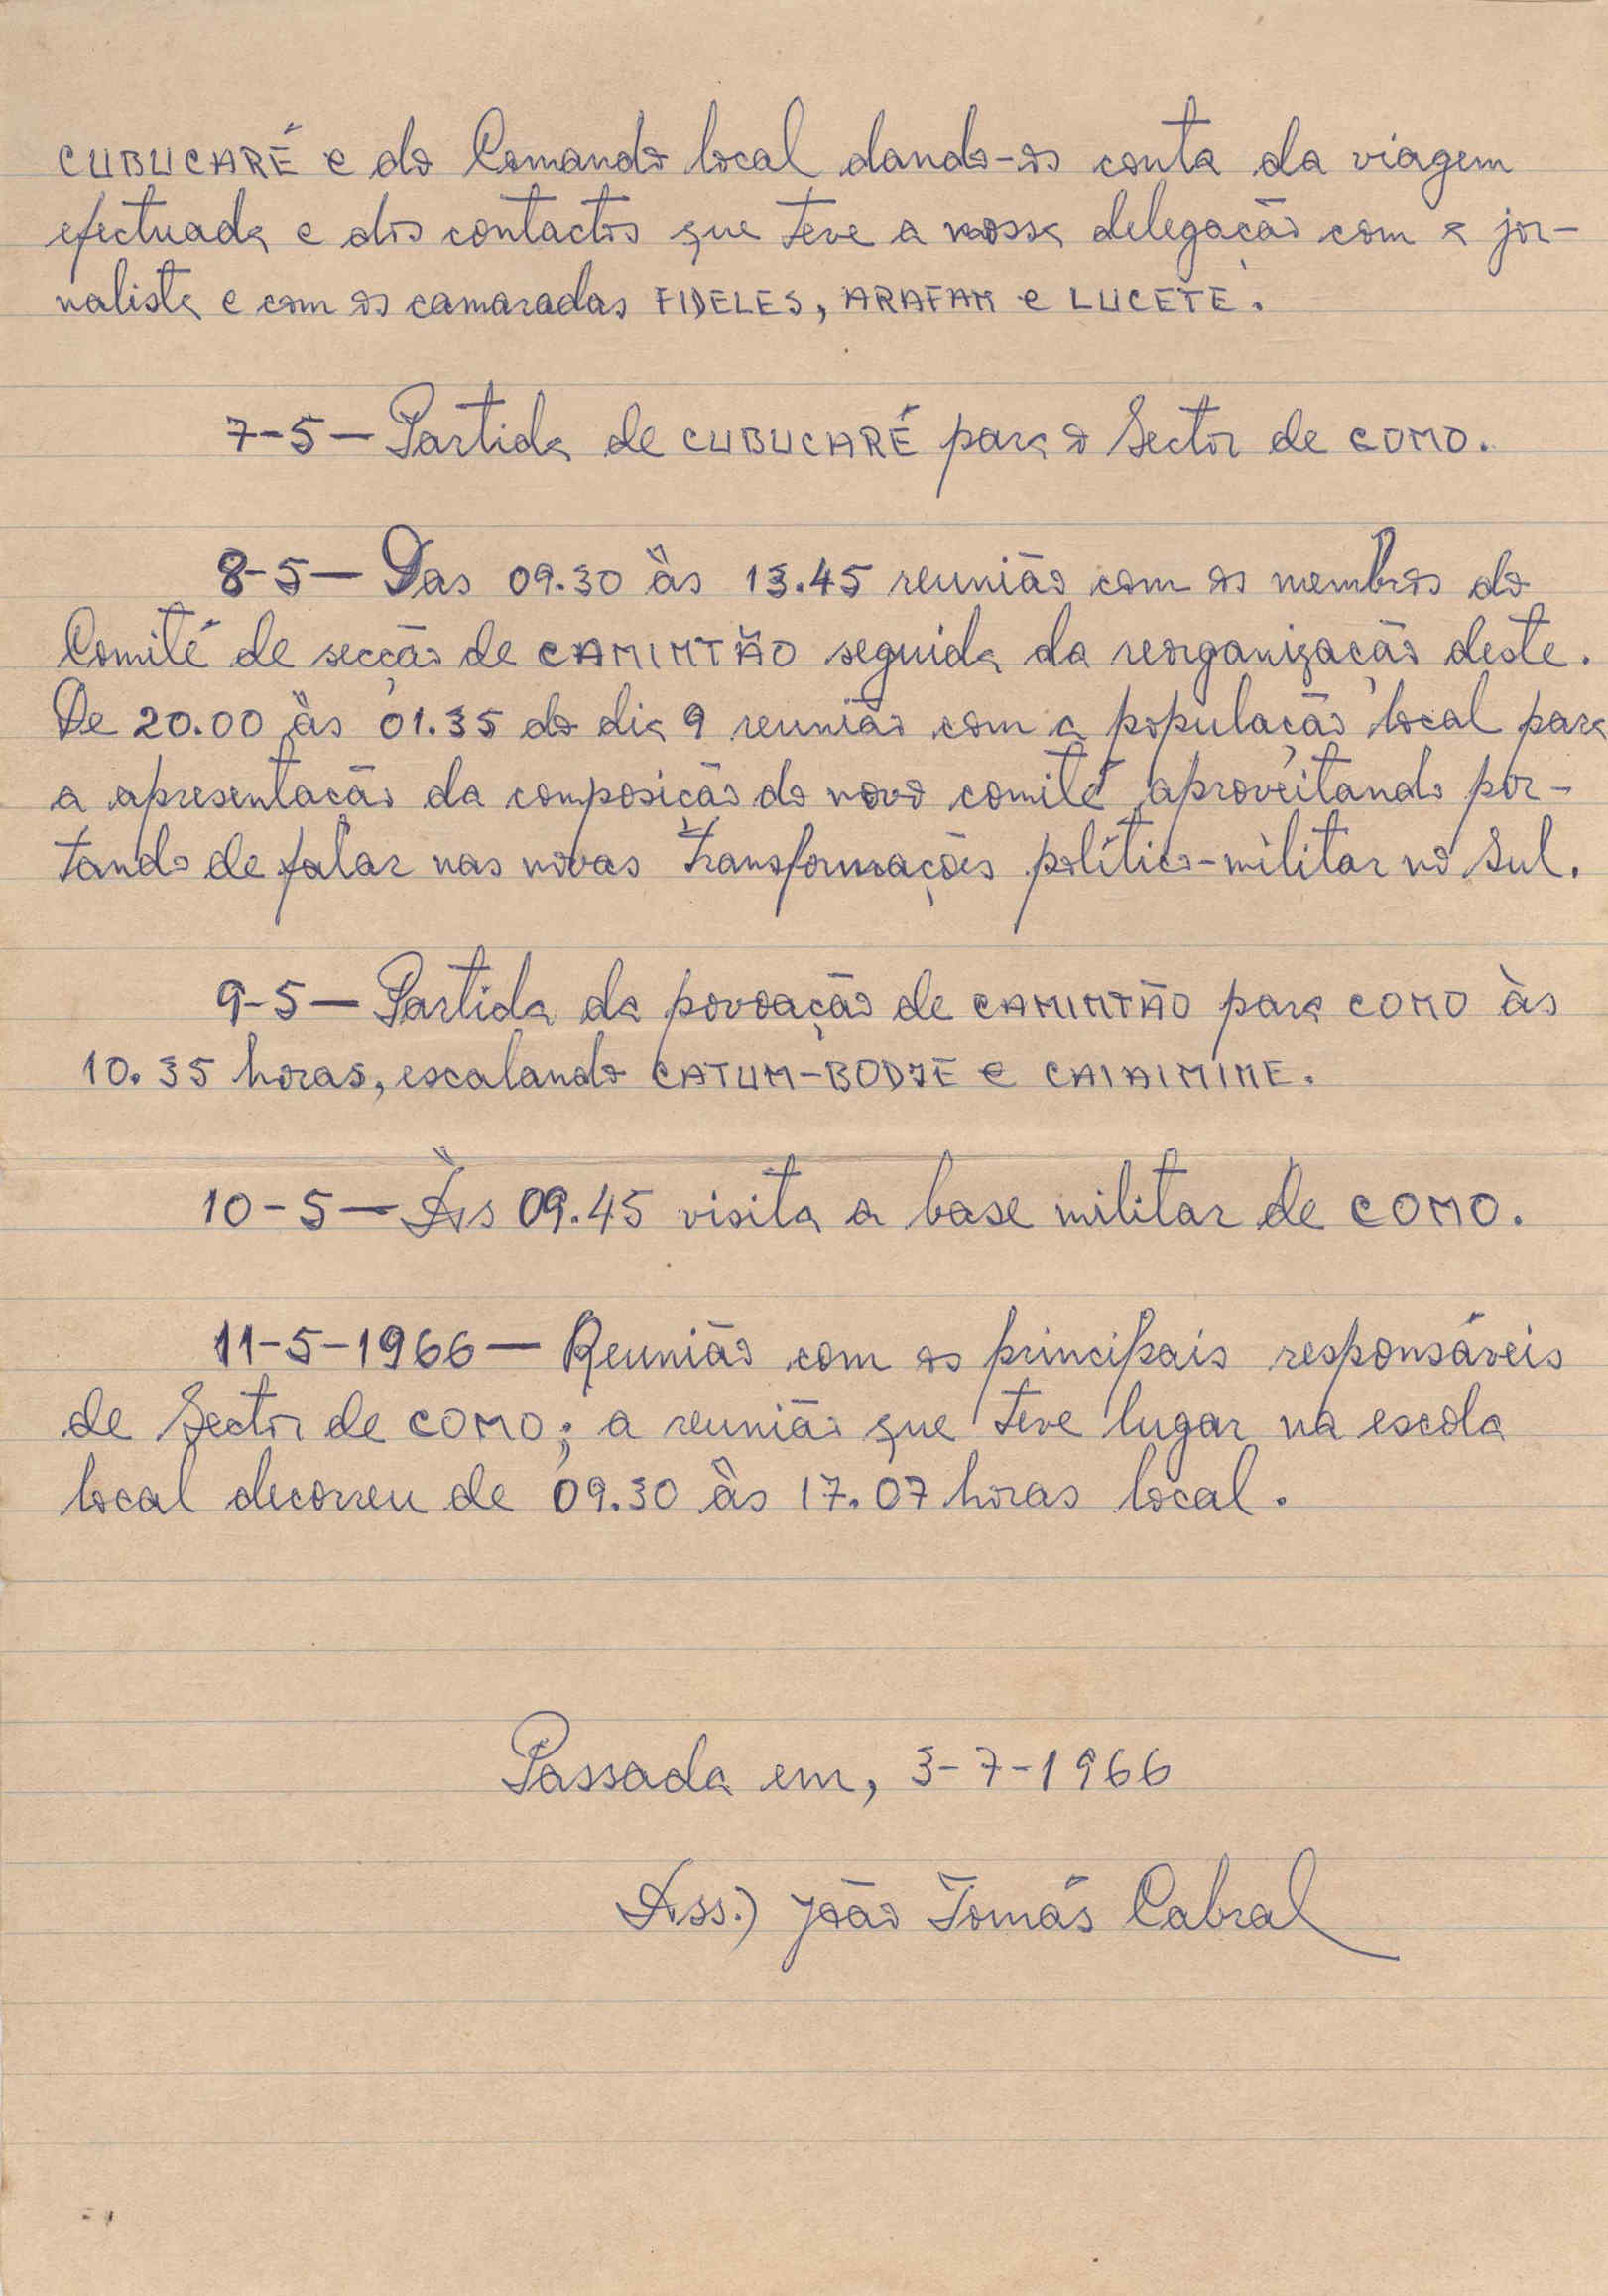 CUBUCARÉ e do Comando local dando-os conta da viagem
efectuada e dos contactos que teve a nossa delegação com a jor-
nalista e com os camaradas FIDELES, ARAFAM e LUCETE.
7-5 — Partida de CUBUCARÉ para o Sector de COMO.
8-5 — Das 09.30 às 13.45 reunião com os membros do
Comité de secção de CAMINTÃO seguida da reorganização deste.
De 20.00 às 01.35 do dia 9 reunião com a população local para
a apresentação da composição do novo comité aproveitando por-
tando de falar nas novas transformações político-militar no Sul.
9-5 — Partida da povoação de CAMINTÃO para COMO às
10.35 horas, escalando CATUM-BODJE e CAIAIMINE.
10-5 — Às 09.45 visita a base militar de COMO.
11-5-1966 — Reunião com os principais responsáveis
de Sector de COMO; a reunião que teve lugar na escola
local decorreu de 09.30 às 17.07 horas local.
Passada em, 3-7-1966
Ass.) João Tomás Cabral